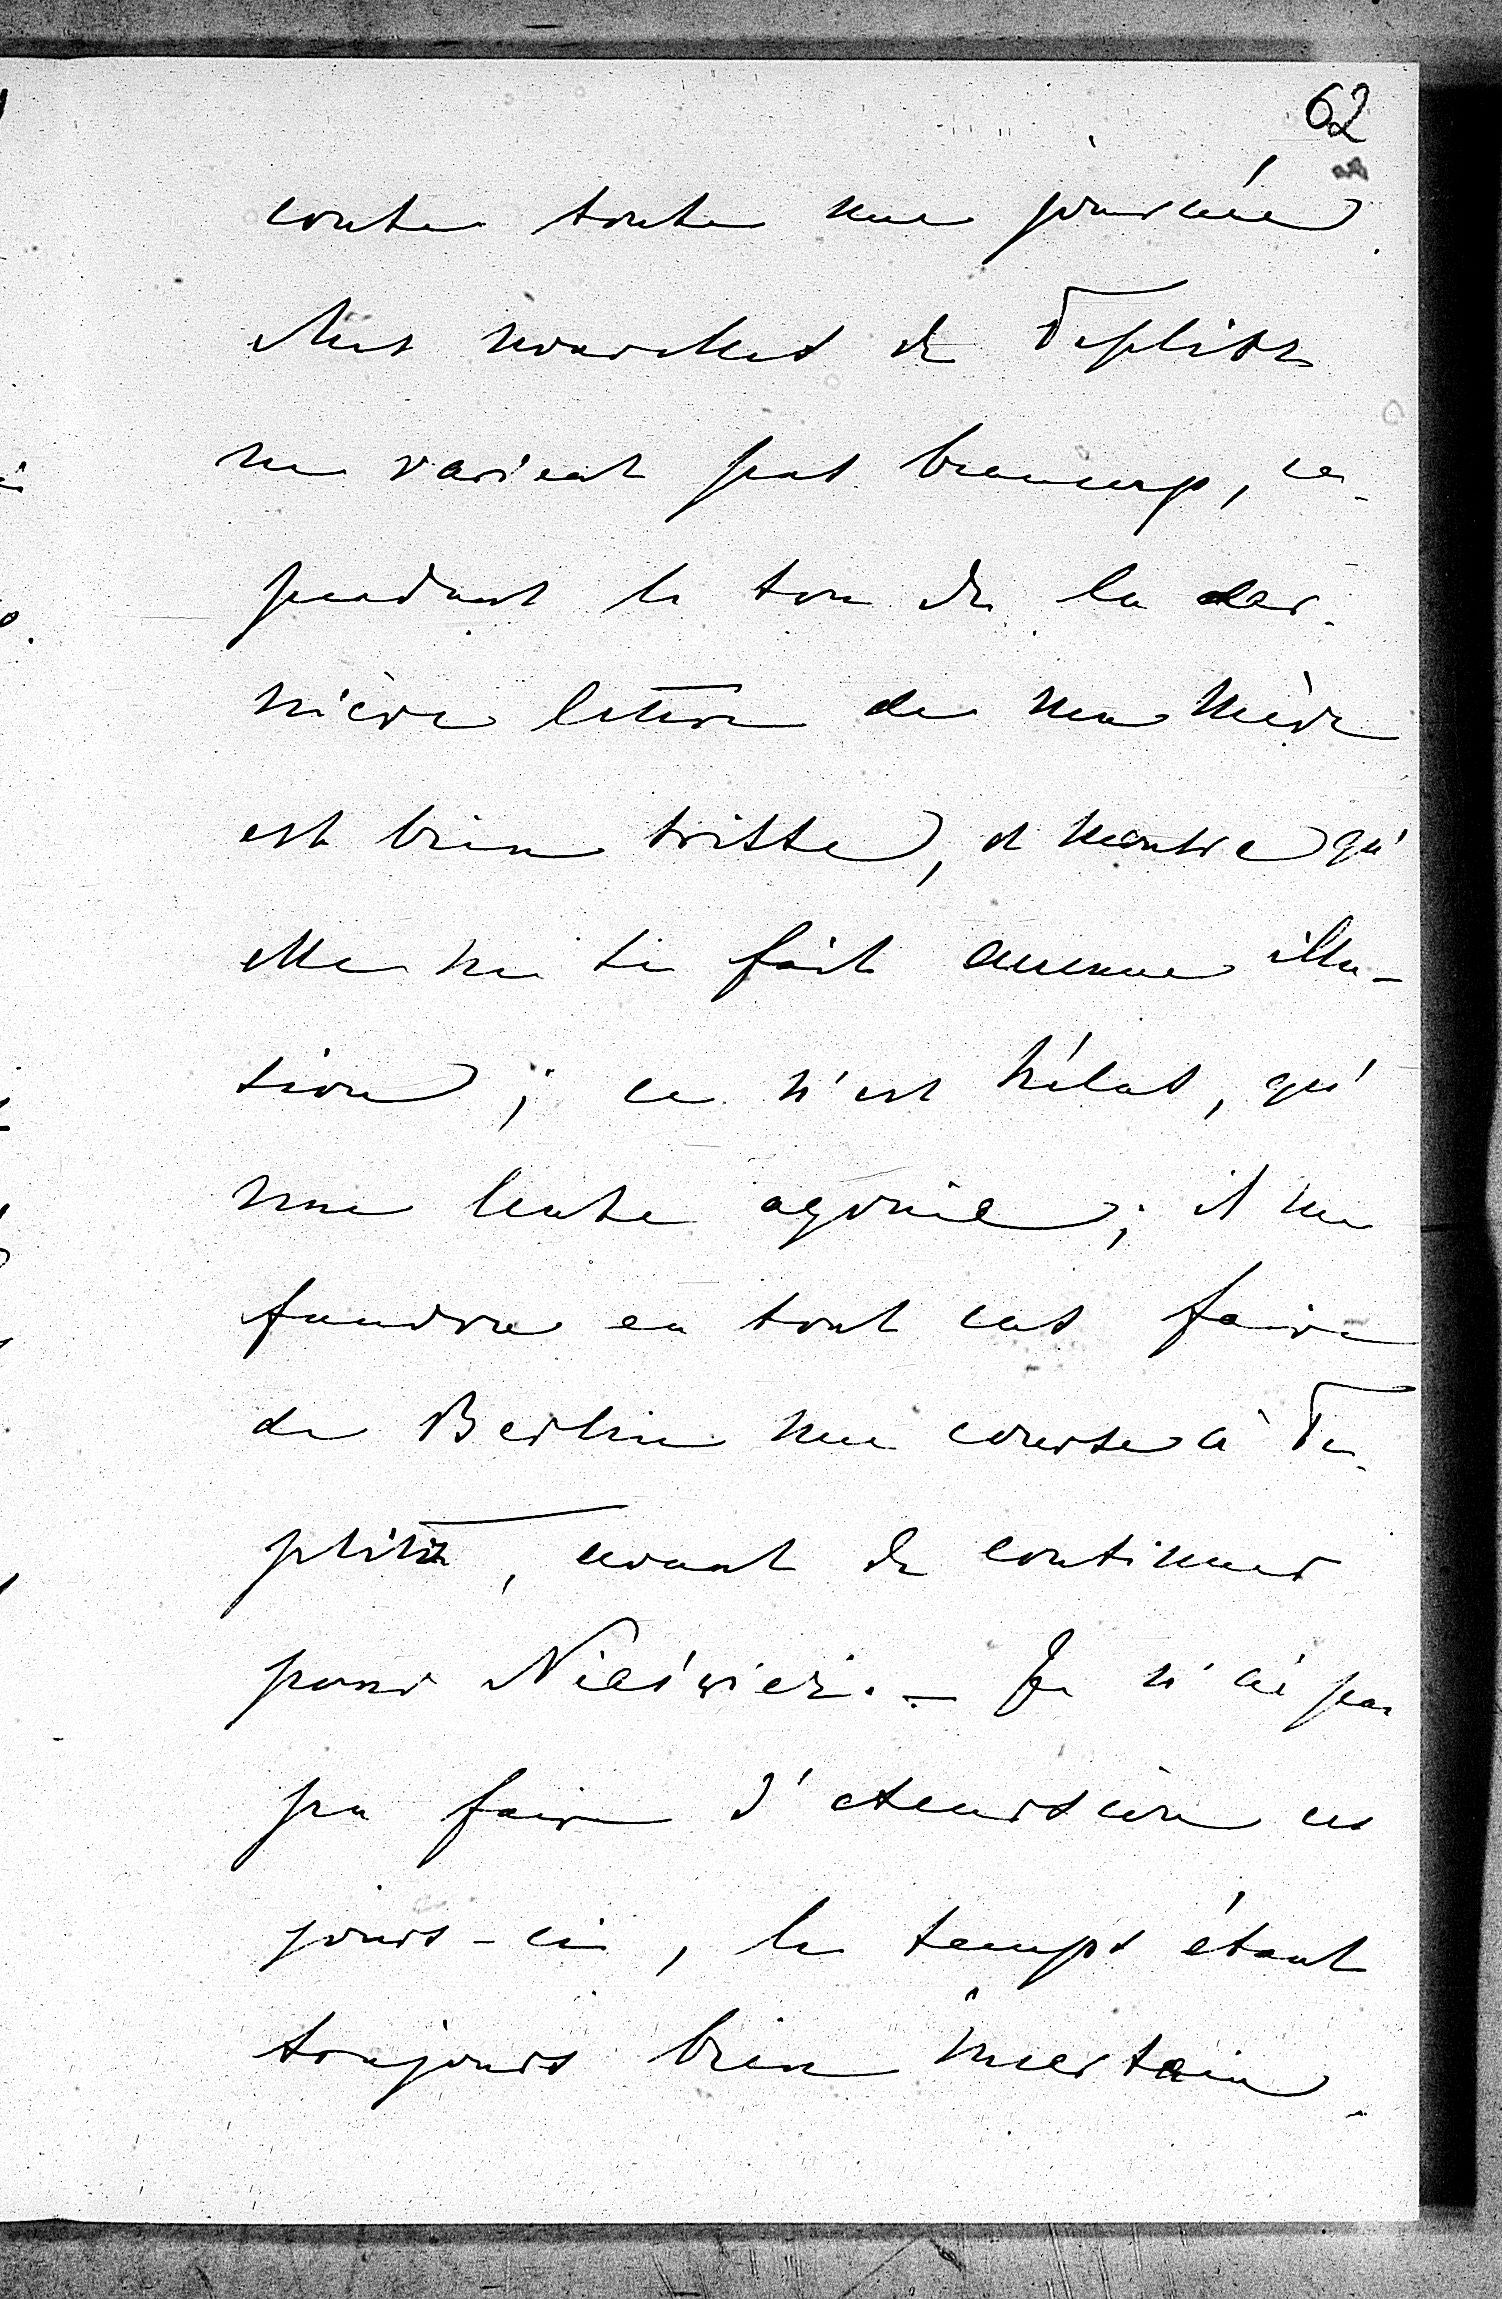 62
coute toute une journée.
Mes nouvelles de Teplitz
ne varient pas beaucoup, ce-
pendant le ton de la der-
nière lettre de ma Mère
est bien triste, et montre qu'
elle ne se fait aucune illu-
sion; ce n'est hélas, qu'
une lente agonie; il me
faudra en tout cas faire
de Berlin une course à Te-
plitz, avant de continuer
pour Nieśwież. — Je n'ai pas
pu faire d'excursion ces
jours-ci, le temps étant
toujours bien incertain.